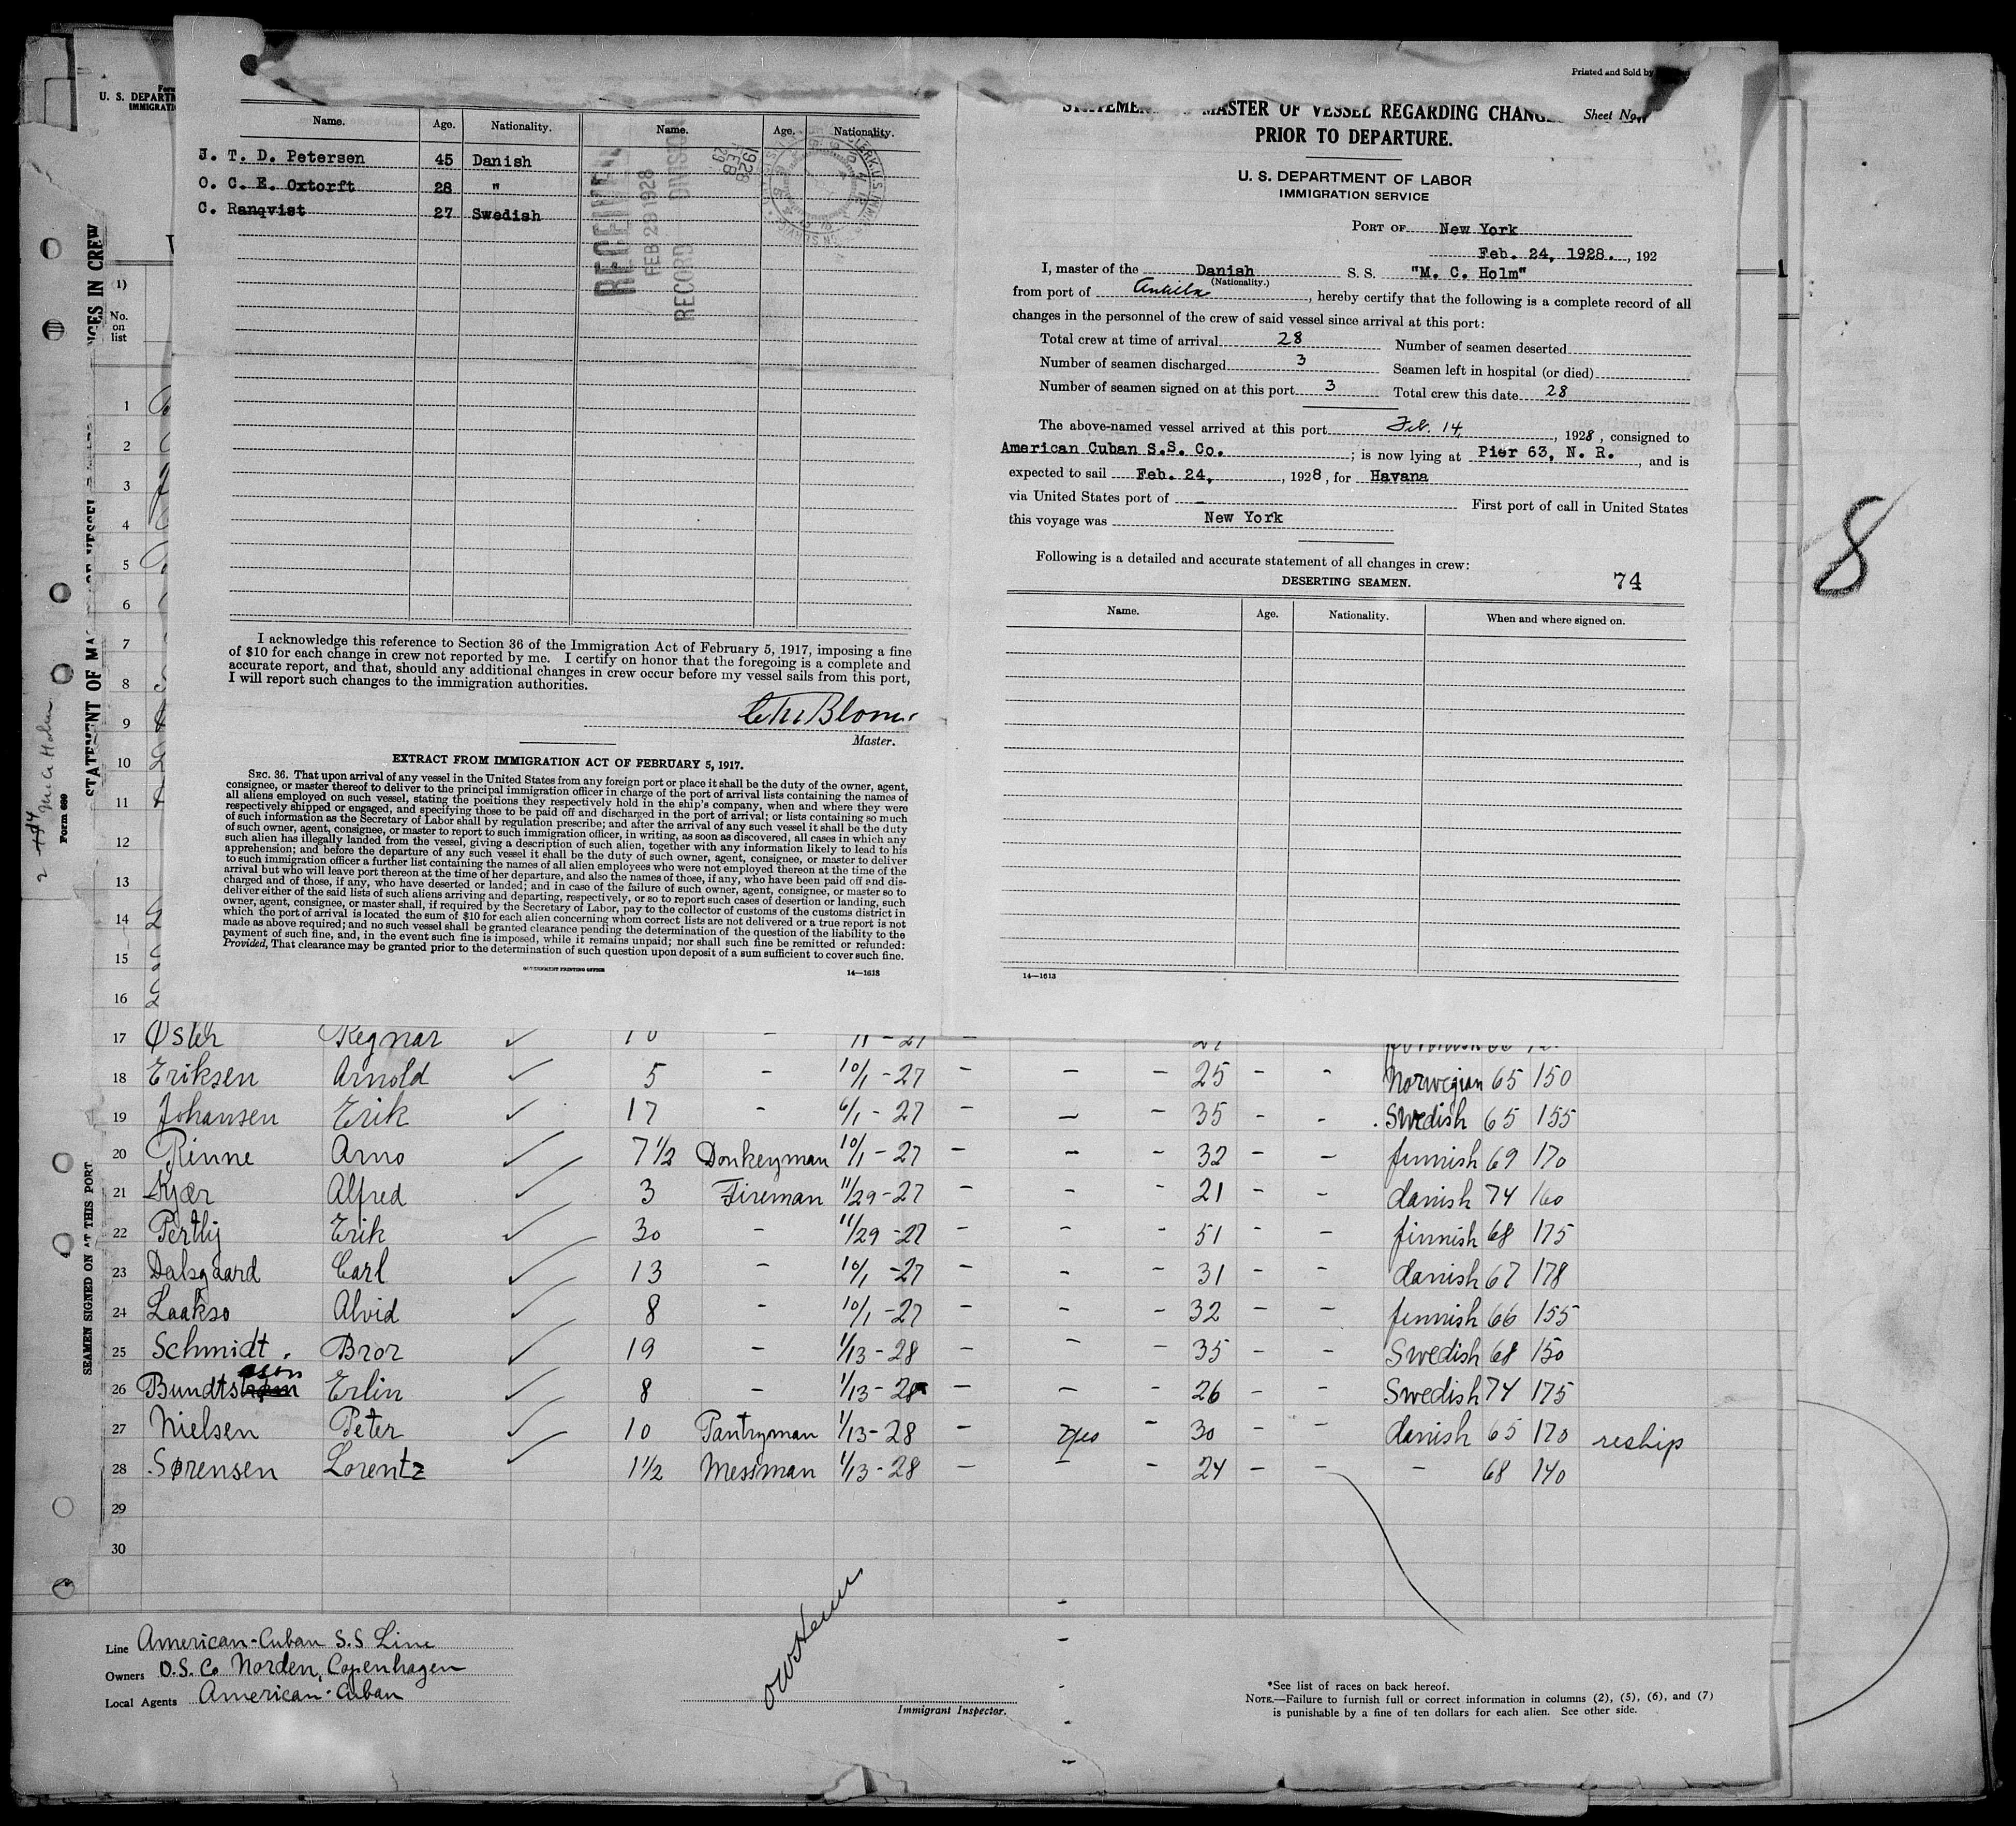 Printed and Sold by
U. S. DEPARTM
IMMIGRATI
(1)
No.
on
list
STATEMENT OF MA
SEAMEN SIGNED ON AT THIS PORT
Form 689
Name. Age. Nationality. Name. Age. Nationality.
J. T. D. Petersen 45 Danish
O. C. E. Oxtorft 28 "
C. Ranqvist 27 Swedish
RECEIVED
FEB 29 1928
RECORD DIVISION
1928
FEB
29
I acknowledge this reference to Section 36 of the Immigration Act of February 5, 1917, imposing a fine
of $10 for each change in crew not reported by me. I certify on honor that the foregoing is a complete and
accurate report, and that, should any additional changes in crew occur before my vessel sails from this port,
I will report such changes to the immigration authorities.
Master.
EXTRACT FROM IMMIGRATION ACT OF FEBRUARY 5, 1917.
SEC. 36. That upon arrival of any vessel in the United States from any foreign port or place it shall be the duty of the owner, agent,
consignee, or master thereof to deliver to the principal immigration officer in charge of the port of arrival lists containing the names of
all aliens employed on such vessel, stating the positions they respectively hold in the ship's company, when and where they were
respectively shipped or engaged, and specifying those to be paid off and discharged in the port of arrival; or lists containing so much
of such information as the Secretary of Labor shall by regulation prescribe; and after the arrival of any such vessel it shall be the duty
of such owner, agent, consignee, or master to report to such immigration officer, in writing, as soon as discovered, all cases in which any
such alien has illegally landed from the vessel, giving a description of such alien, together with any information likely to lead to his
apprehension; and before the departure of any such vessel it shall be the duty of such owner, agent, consignee, or master to deliver
to such immigration officer a further list containing the names of all alien employees who were not employed thereon at the time of the
arrival but who will leave port thereon at the time of her departure, and also the names of those, if any, who have been paid off and dis-
charged and of those, if any, who have deserted or landed; and in case of the failure of such owner, agent, consignee, or master so to
deliver either of the said lists of such aliens arriving and departing, respectively, or so to report such cases of desertion or landing, such
owner, agent, consignee, or master shall, if required by the Secretary of Labor, pay to the collector of customs of the customs district in
which the port of arrival is located the sum of $10 for each alien concerning whom correct lists are not delivered or a true report is not
made as above required; and no such vessel shall be granted clearance pending the determination of the question of the liability to the
payment of such fine, and, in the event such fine is imposed, while it remains unpaid; nor shall such fine be remitted or refunded:
Provided, That clearance may be granted prior to the determination of such question upon deposit of a sum sufficient to cover such fine.
GOVERNMENT PRINTING OFFICE 14—1613
MASTER OF VESSEL REGARDING CHANG Sheet No.
PRIOR TO DEPARTURE.
U. S. DEPARTMENT OF LABOR
IMMIGRATION SERVICE
PORT OF New York
Feb. 24, 1928. , 192
I, master of the Danish S. S. "M. C. Holm"
(Nationality.)
from port of Antilla , hereby certify that the following is a complete record of all
changes in the personnel of the crew of said vessel since arrival at this port:
Total crew at time of arrival 28 Number of seamen deserted
Number of seamen discharged 3 Seamen left in hospital (or died)
Number of seamen signed on at this port 3 Total crew this date 28
The above-named vessel arrived at this port Feb. 14, , 1928 , consigned to
American Cuban S.S. Co. ; is now lying at Pier 63, N. R. , and is
expected to sail Feb. 24, , 1928 , for Havana
via United States port of - First port of call in United States
this voyage was New York
Following is a detailed and accurate statement of all changes in crew:
DESERTING SEAMEN. 74
Name. Age. Nationality. When and where signed on.
14—1613
8
1
2
3
4
5
6
7
8
9
10
11
12
13
14
15
16
17 Øster Regnar 10 - 27
18 Eriksen Arnold 5 - 10/1 - 27 - - - 25 - - Norwegian 65 150
19 Johansen Erik 17 - 6/1 - 27 - - - 35 - - Swedish 65 155
20 Rinne Arno 7 1/2 Donkeyman 10/1 - 27 - - - 32 - - finnish 69 170
21 Kjær Alfred 3 Fireman 11/29 - 27 - - - 21 - - danish 74 160
22 Perthj Erik 30 - 11/29 - 27 - - - 51 - - finnish 68 175
23 Dalsgaard Carl 13 - 10/1 - 27 - - - 31 - - danish 67 178
24 Laakso Alvid 8 - 10/1 - 27 - - - 32 - - finnish 66 155
25 Schmidt Bror 19 - 1/13 - 28 - - 35 - - Swedish 68 150
26 Bundtsson Erlin 8 - 1/13 - 28 - - - 26 - - Swedish 74 175
27 Nielsen Peter 10 Pantryman 1/13 - 28 - yes - 30 - - danish 65 170 reship
28 Sørensen Lorentz 1 1/2 Messman 1/13 - 28 - - - 24 - - - 68 140
29
30
Line American-Cuban S.S Line
Owners D.S. Co Norden, Copenhagen
Local Agents American-Cuban
Immigrant Inspector.
*See list of races on back hereof.
NOTE.—Failure to furnish full or correct information in columns (2), (5), (6), and (7)
is punishable by a fine of ten dollars for each alien. See other side.